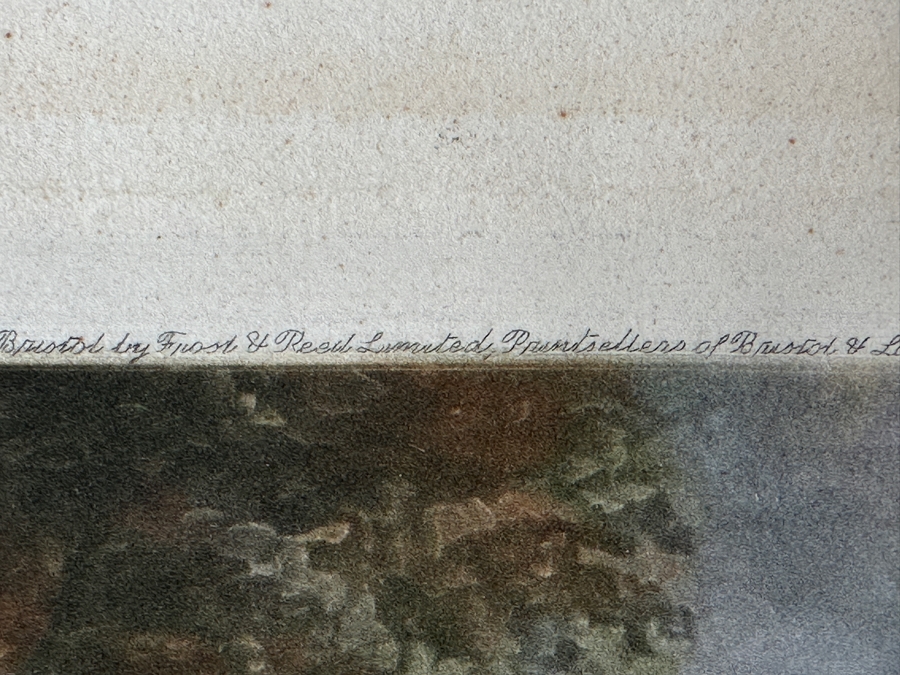 Bristol by Frost & Reed Limited, Printsellers of Bristol & Lo